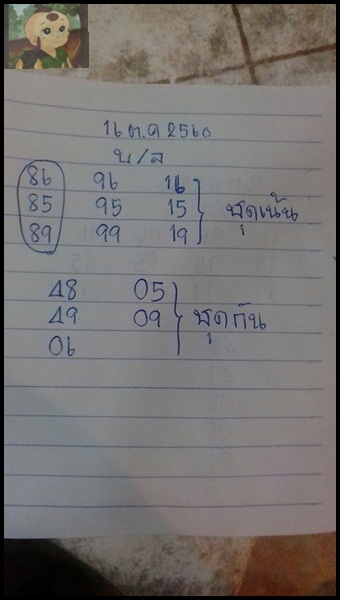 16 ต.ค 2560
บ/ล
86 96 16
85 95 15 ชุดเน้น
89 99 19
48 05
49 09 ชุดกัน
06